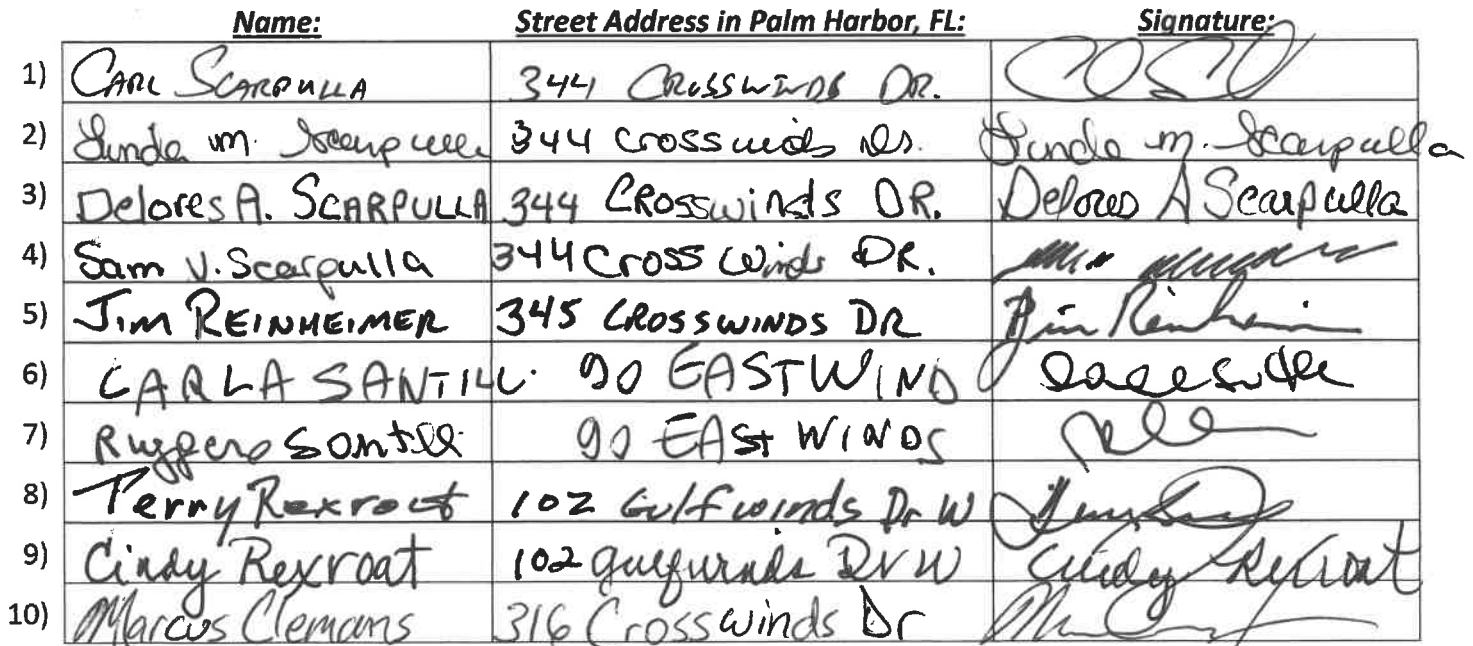 Name: Street Address in Palm Harbor, FL: Signature:
1) CARL SCARPULLA 344 CROSSWINDS DR.
2) Linda m. Scarpulla 344 Crosswinds Dr. Linda m. Scarpulla
3) Delores A. SCARPULLA 344 CROSSwinds DR. Delores A Scarpulla
4) Sam V. Scarpulla 344 Cross Winds DR.
5) JIM REINHEIMER 345 CROSSWINDS DR Jim Reinheimer
6) CARLA SANTILLI 90 EASTWIND
7) Ruggero Santilli 90 EAST WINDS
8) Terry Rexroat 102 Gulfwinds Dr W
9) Cindy Rexroat 102 gulfwinds Dr W Cindy Rexroat
10) Marcus Clemans 316 Crosswinds Dr